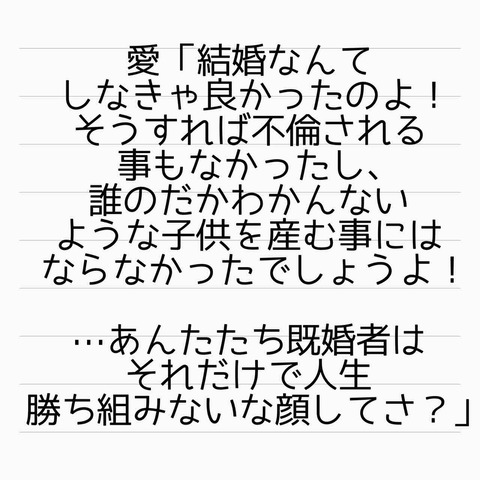 愛「結婚なんて
しなきゃ良かったのよ！
そうすれば不倫される
事もなかったし、
誰のだかわかんない
ような子供を産む事には
ならなかったでしょうよ！
…あんたたち既婚者は
それだけで人生
勝ち組みないな顔してさ？」